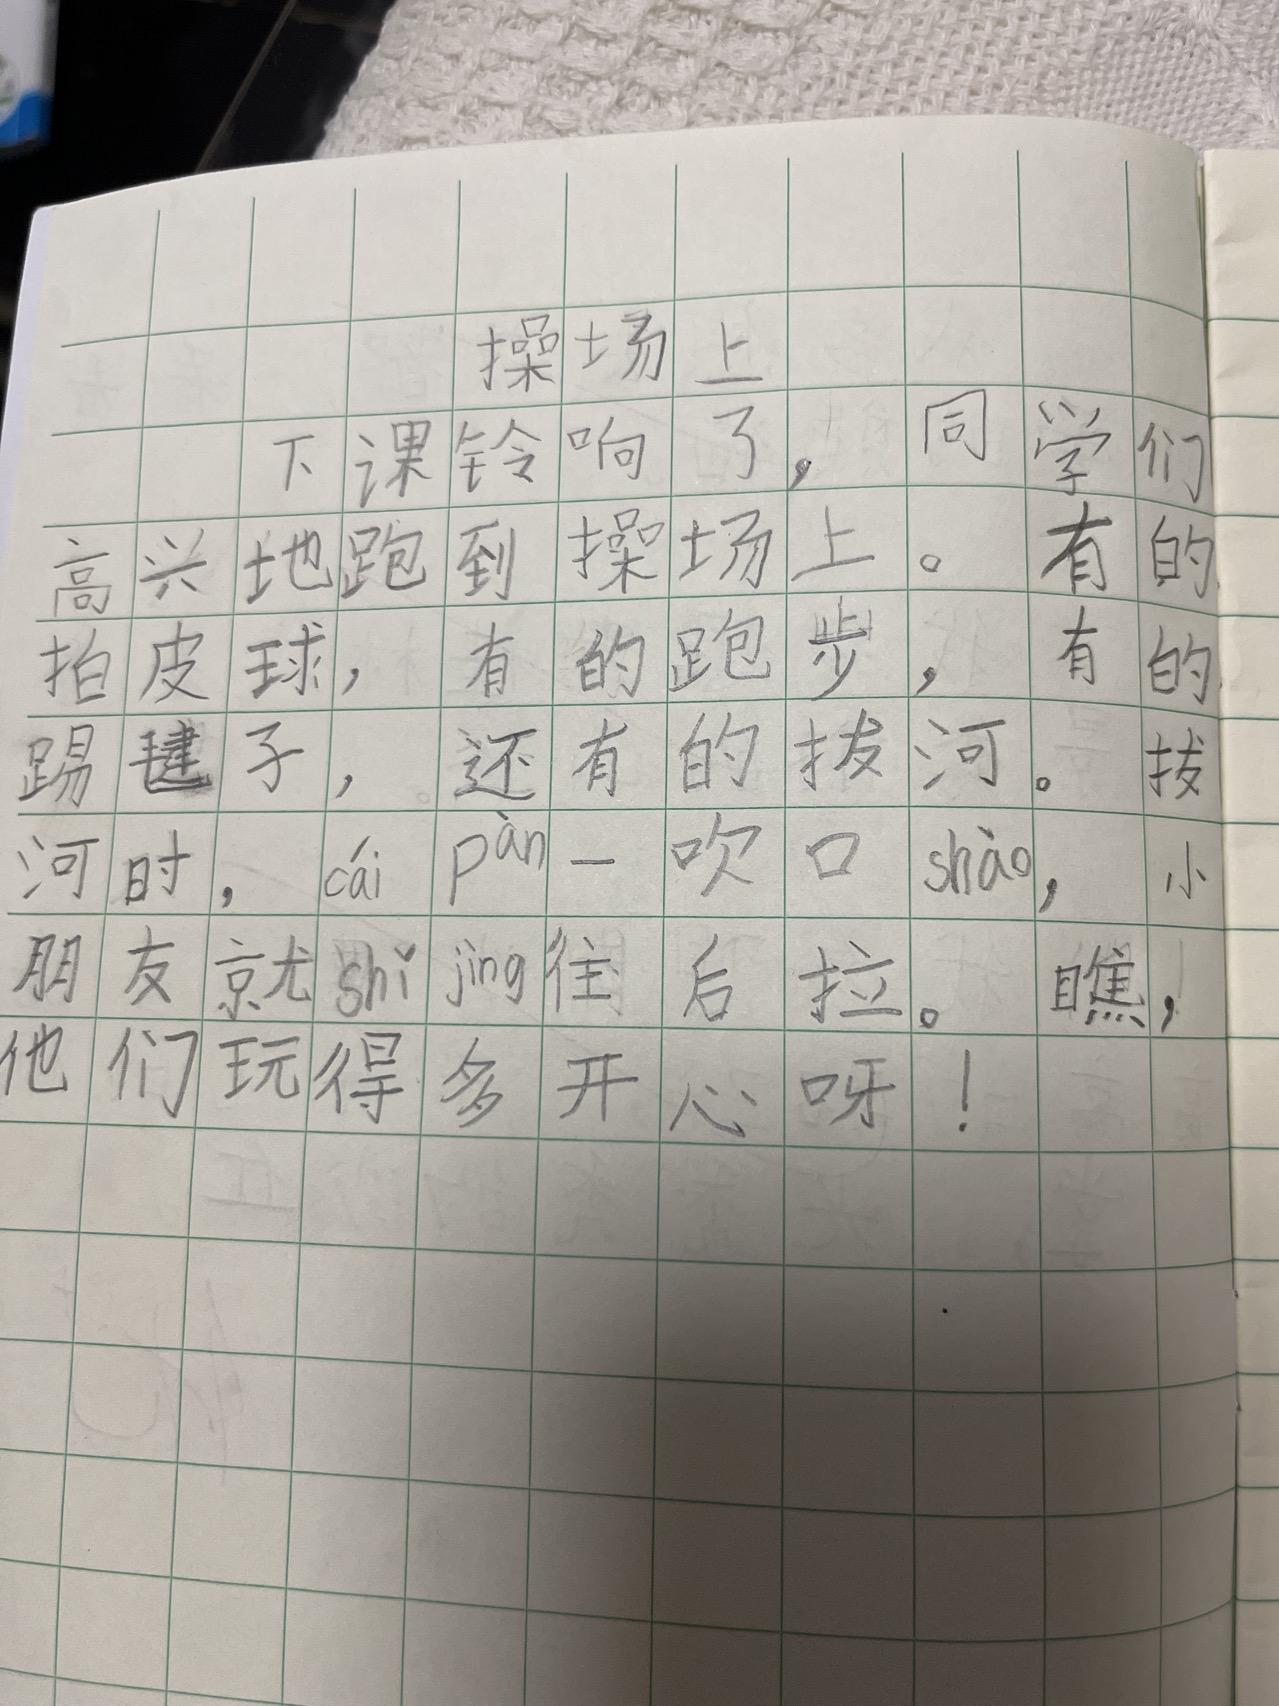 操场上
下课铃响了，同学们
高兴地跑到操场上。有的
拍皮球，有的跑步，有的
踢毽子，还有的拔河。拔
河时，cái pàn一吹口shào，小
朋友就shǐ jìng往后拉。瞧，
他们玩得多开心呀！